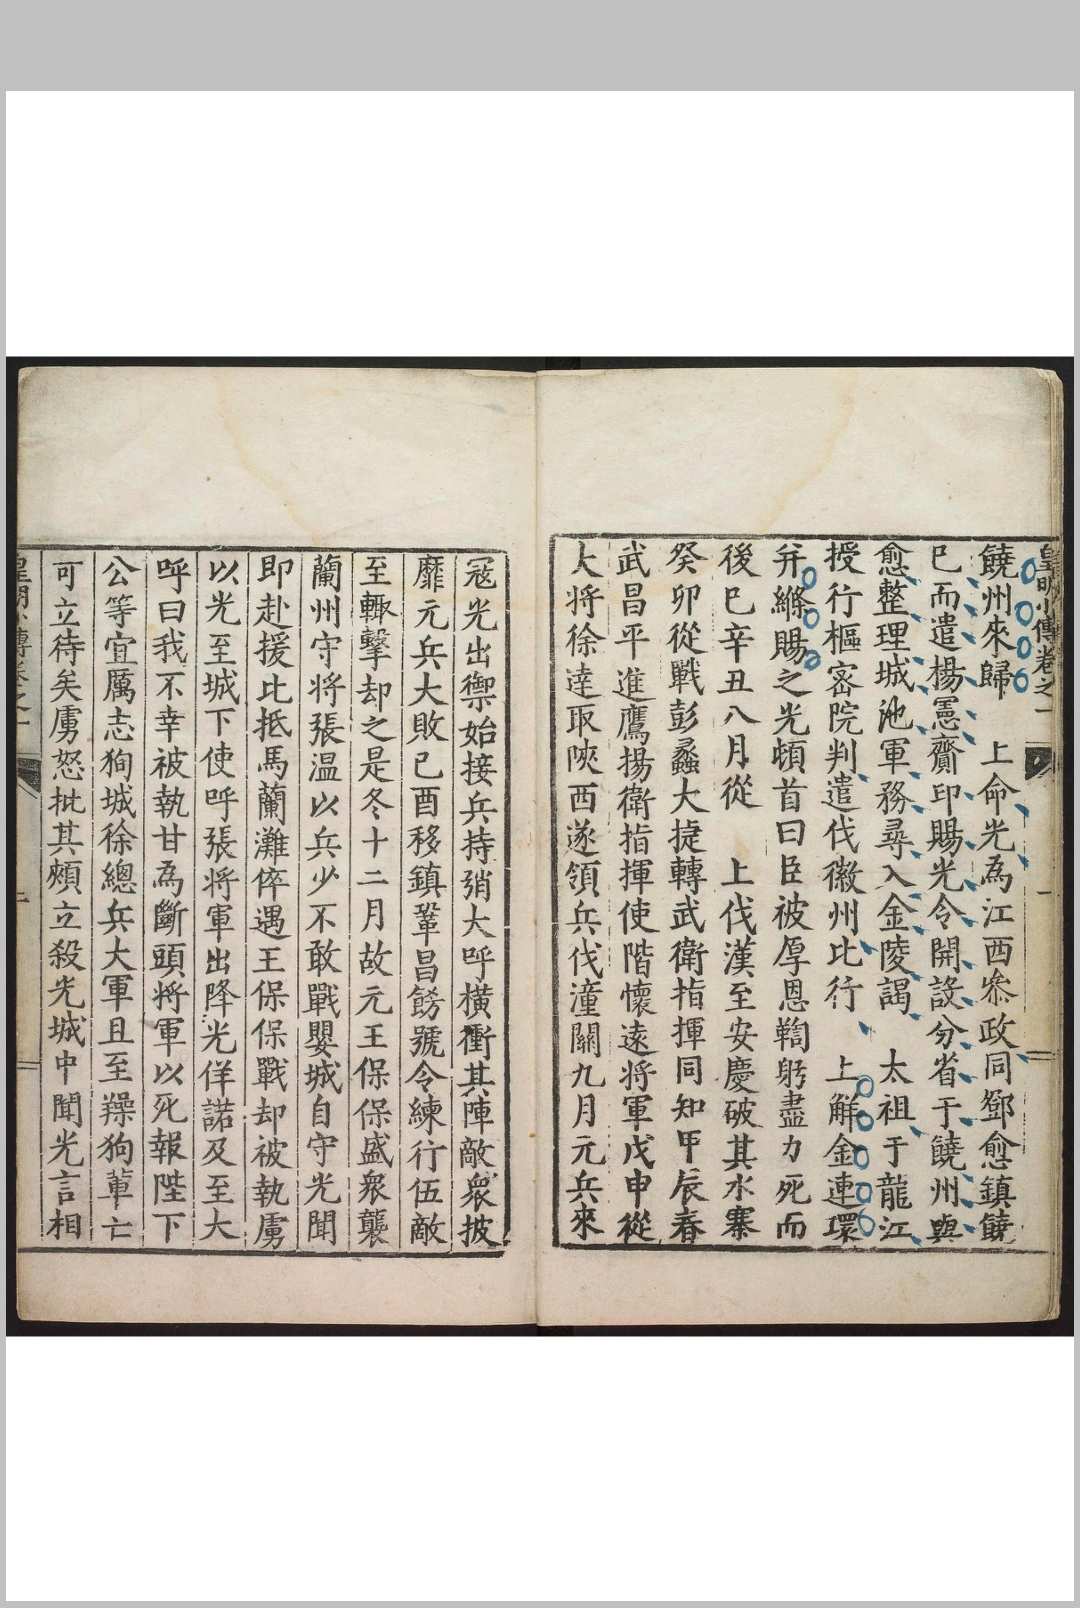 皇明小傳卷之一
一
饒州來歸　上命光為江西叅政同鄧愈鎮饒
已而遣楊憲齎印賜光令開設分省于饒州與
愈整理城池軍務尋入金陵謁　太祖于龍江
授行樞密院判遣伐徽州比行　上解金連環
并縧賜之光頓首曰臣被厚恩鞫躬盡力死而
後已辛丑八月從　上伐漢至安慶破其水寨
癸卯從戰彭蠡大捷轉武衛指揮同知甲辰春
武昌平進鷹揚衛指揮使階懷遠將軍戊申從
大將徐達取陜西遂領兵伐潼關九月元兵來
冦光出禦始接兵持矟大呼橫衝其陣敵衆披
靡元兵大敗已酉移鎮鞏昌餝號令練行伍敵
至輙擊却之是冬十二月故元王保保盛衆襲
蘭州守將張温以兵少不敢戰嬰城自守光聞
即赴援比抵馬蘭灘倅遇王保保戰却被執虜
以光至城下使呼張將軍出降光佯諾及至大
呼曰我不幸被執甘為斷頭將軍以死報陛下
公等宜厲志狥城徐總兵大軍且至羶狗輩亡
可立待矣虜怒批其頰立殺光城中聞光言相
皇明小傳卷之一